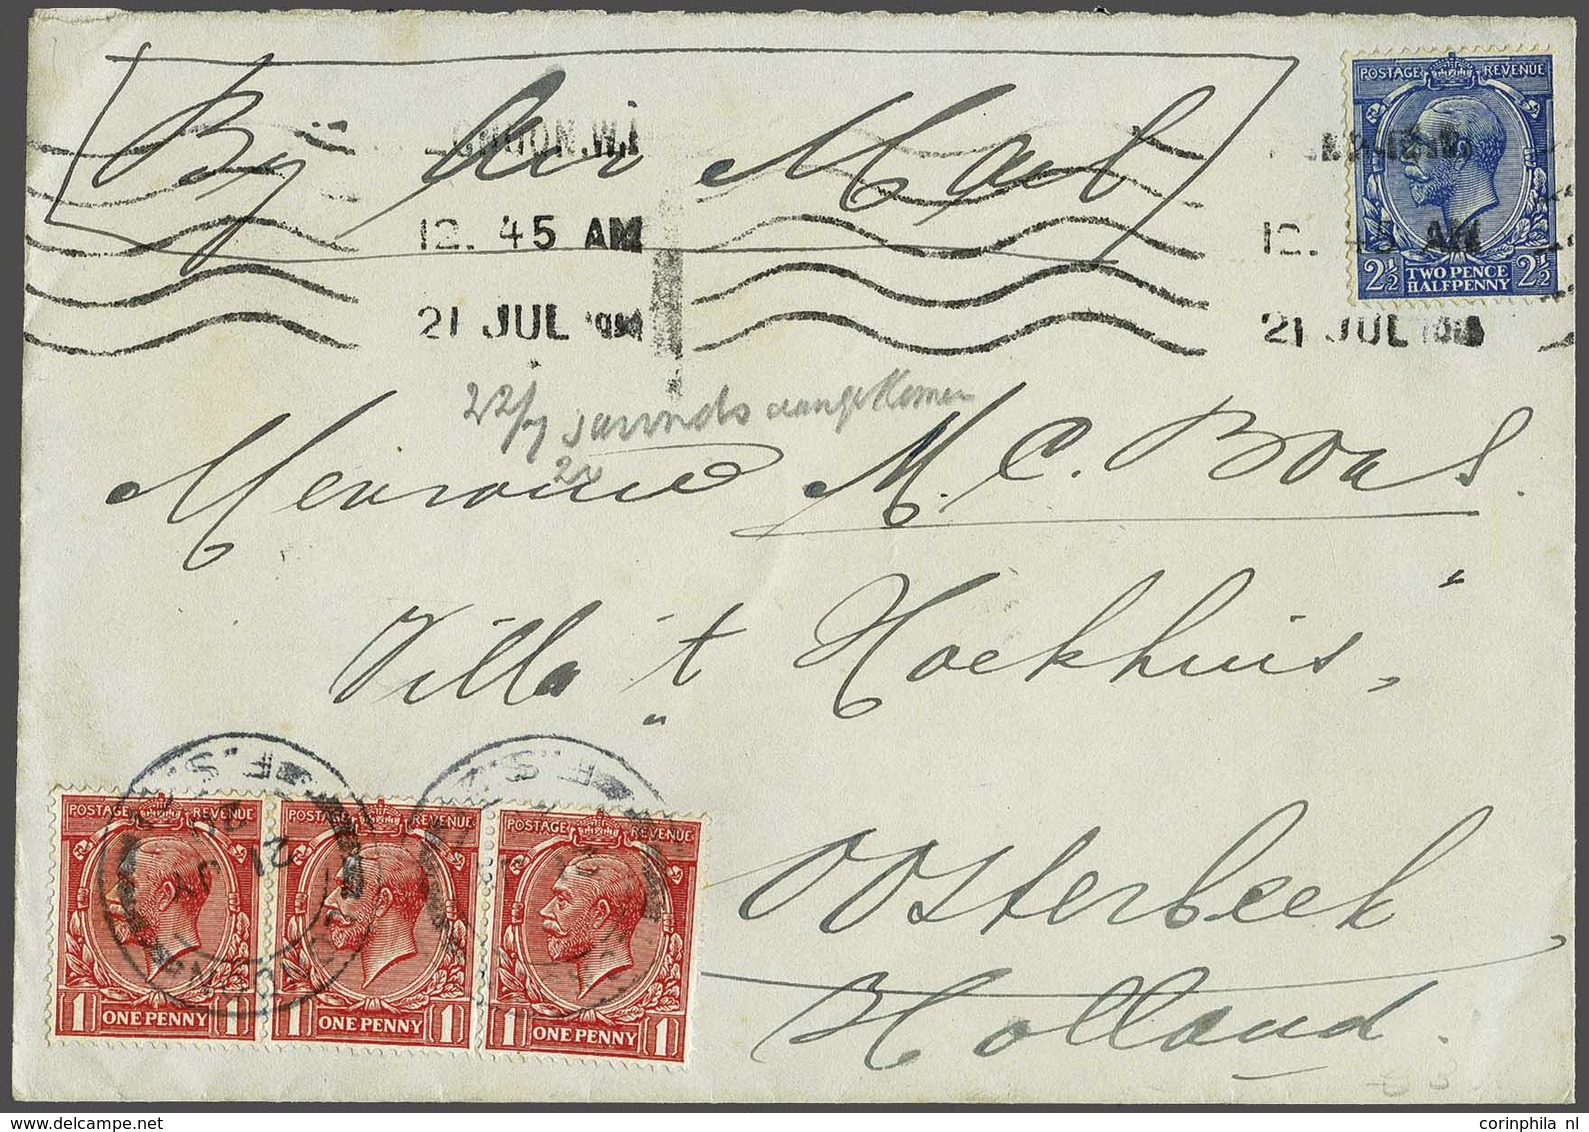 By Air Mail
LONDON.W.1
12. 45 AM
21 JUL
12. 45 AM
21 JUL
POSTAGE REVENUE
2½ TWO PENCE HALFPENNY 2½
22/7 aangekomen
Mevrouw M. C. Boas.
Villa "'t Hoekhuis"
Oosterbeek
Holland.
F.S.
21 JY 20
LONDON
F.S.
21
POSTAGE REVENUE
1 ONE PENNY 1
POSTAGE REVENUE
1 ONE PENNY 1
POSTAGE REVENUE
1 ONE PENNY 1
corinphila nl